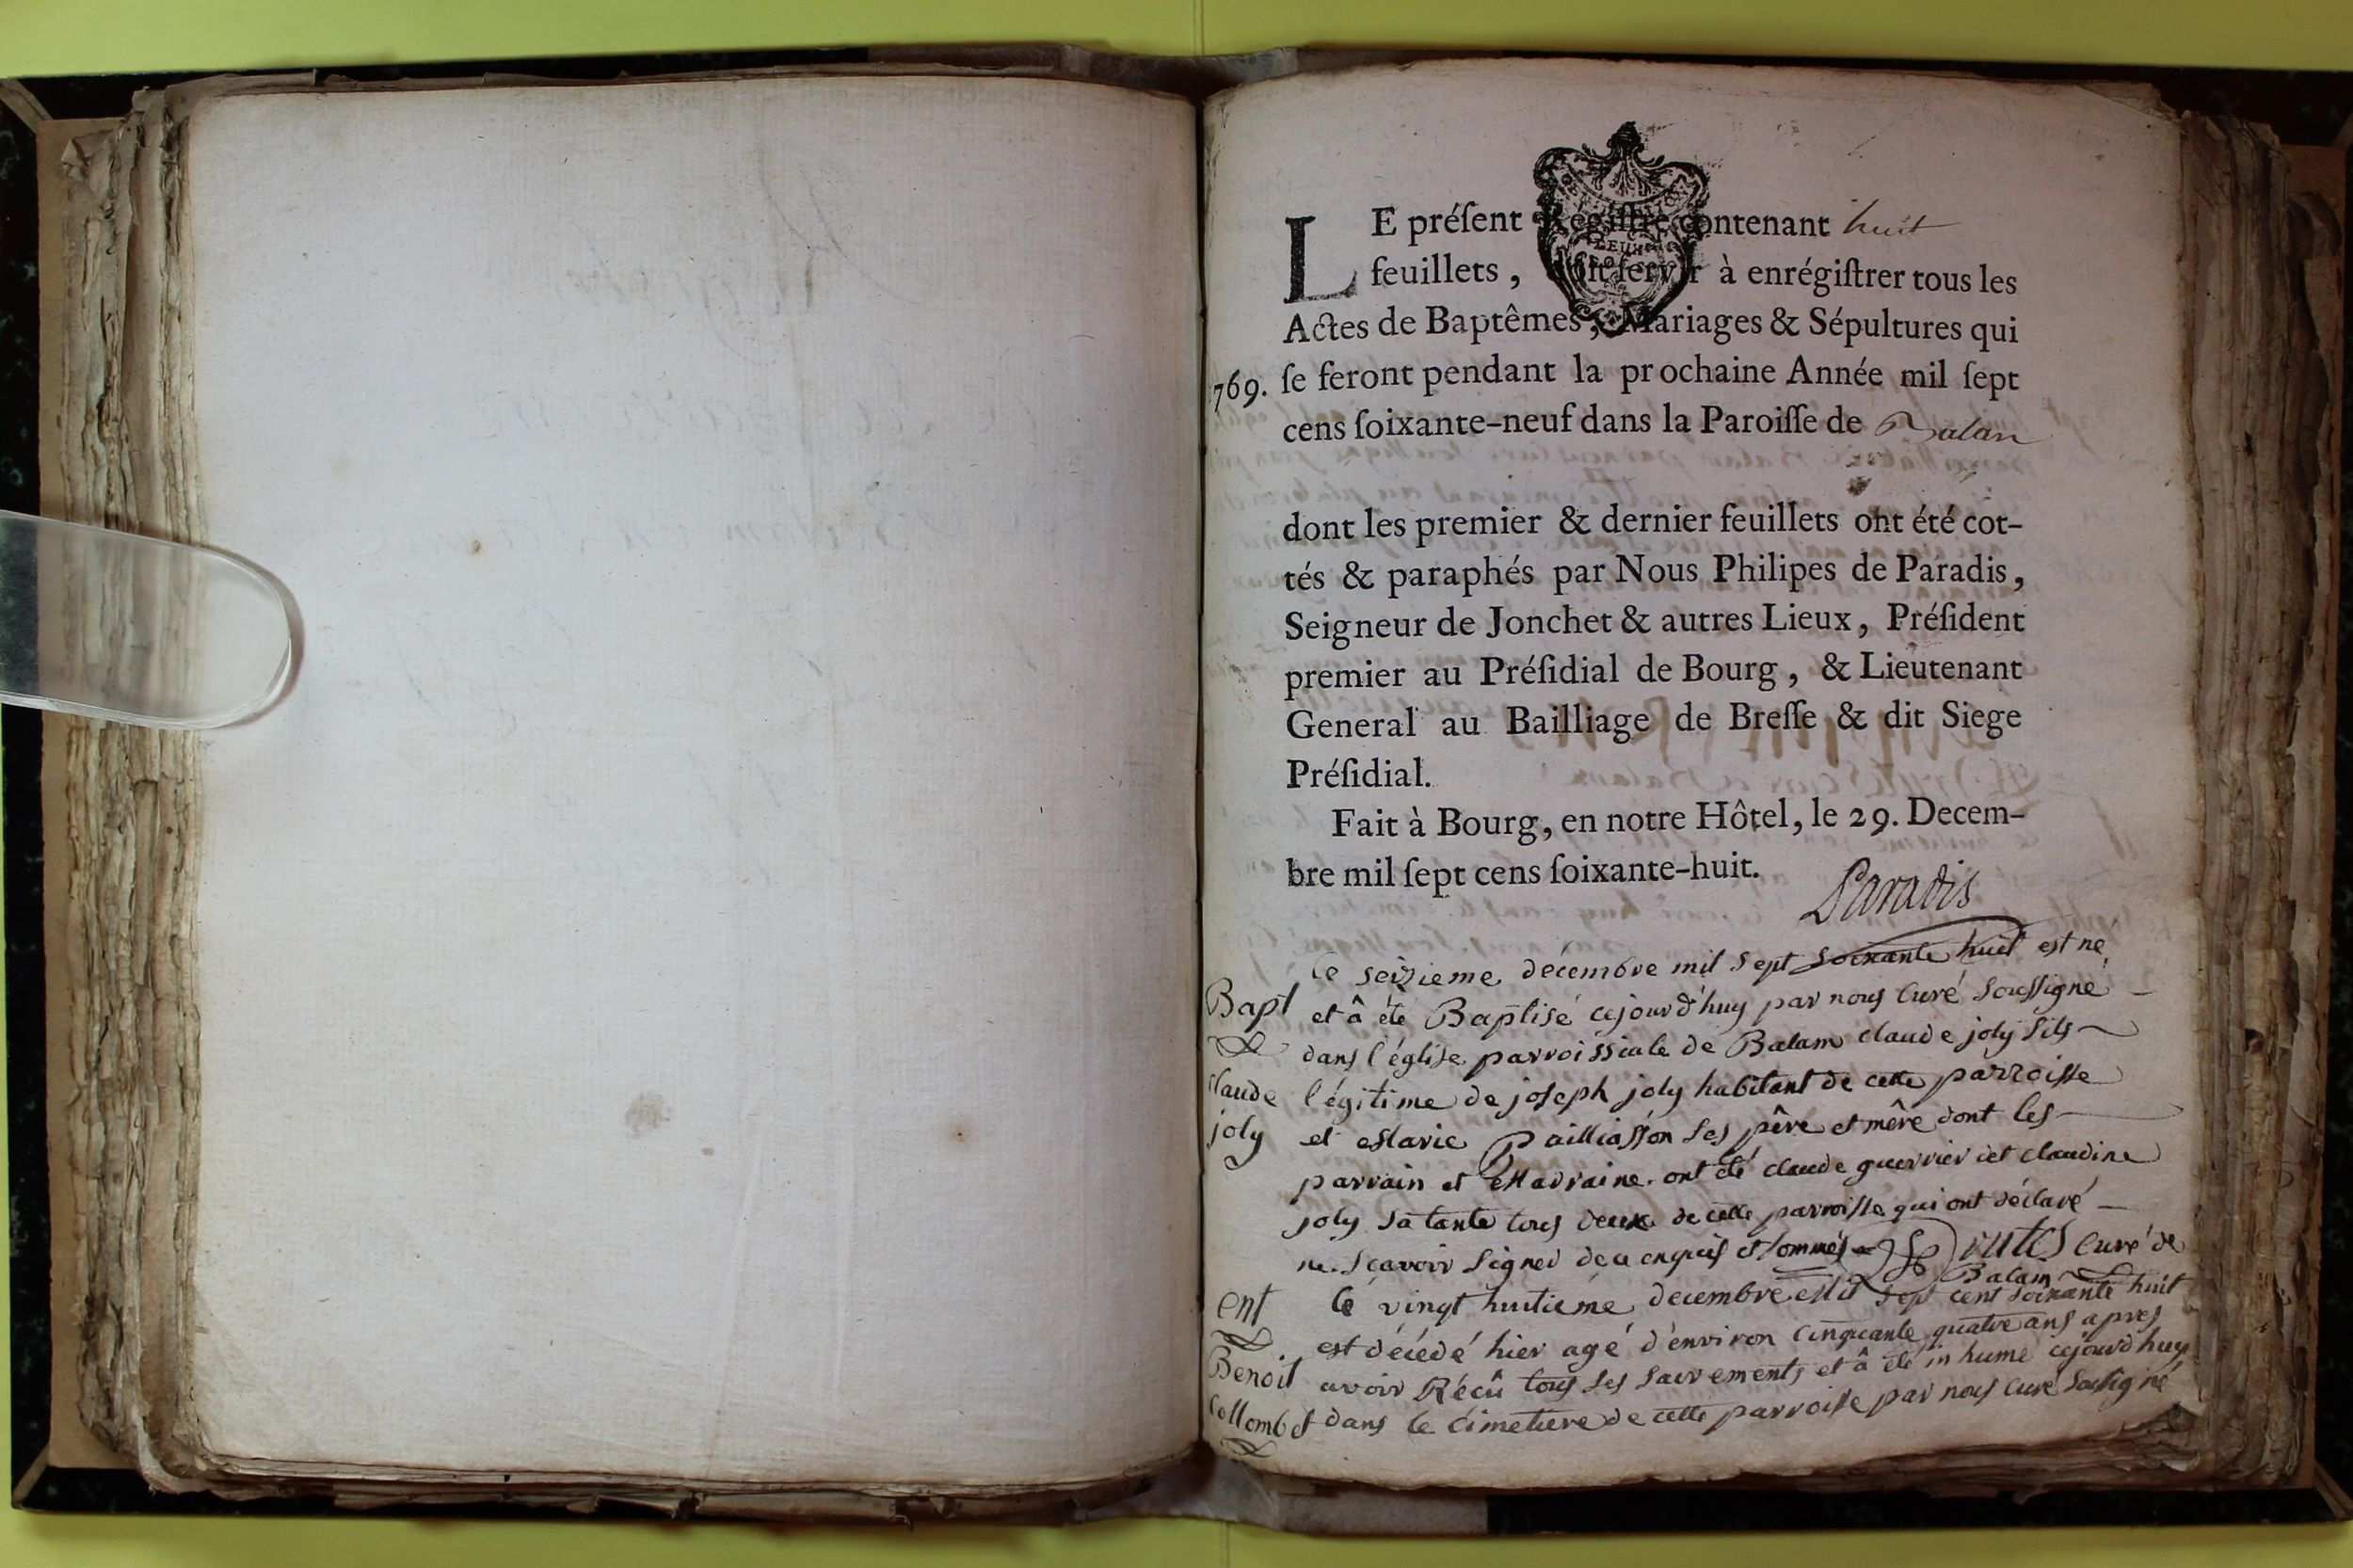 LE préſent Régiſtre contenant huit
feuillets, doit ſervir à enrégiſtrer tous les
Actes de Baptêmes, Mariages & Sépultures qui
769. ſe feront pendant la prochaine Année mil ſept
cens ſoixante-neuf dans la Paroiſſe de Balan
dont les premier & dernier feuillets ont été cot-
tés & paraphés par Nous Philipes de Paradis,
Seigneur de Jonchet & autres Lieux, Préſident
premier au Préſidial de Bourg, & Lieutenant
General au Bailliage de Breſſe & dit Siege
Préſidial.
Fait à Bourg, en notre Hôtel, le 29. Decem-
bre mil ſept cens ſoixante-huit.
Paradis
Le seizieme décembre mil sept soixante huit est né
Bapt et â été Baptisé cejourd'huy par nous Curé Soussigné
dans l'église parroissiale de Balam claude joly fils
claude légitime de joseph joly habitant de cette parroisse
joly et Marie Pailliasson ses pêre et mêre dont les
parrain et Marraine ont été claude guerrier et claudine
joly sa tante tous deux de cette parroisse qui ont déclaré
ne sçavoir signer de ce enquis et sommés Curé de
Balam
ent Le vingt huitième decembre Mil sept cent soixante huit
est décédé hier agé d'environ cinquante quatre ans apres
Benoit avoir Réçû tous ses sacrements et â été inhumé cejourdhuy
Collombet dans le Cimetiere de cette parroisse par nous curé Soussigné